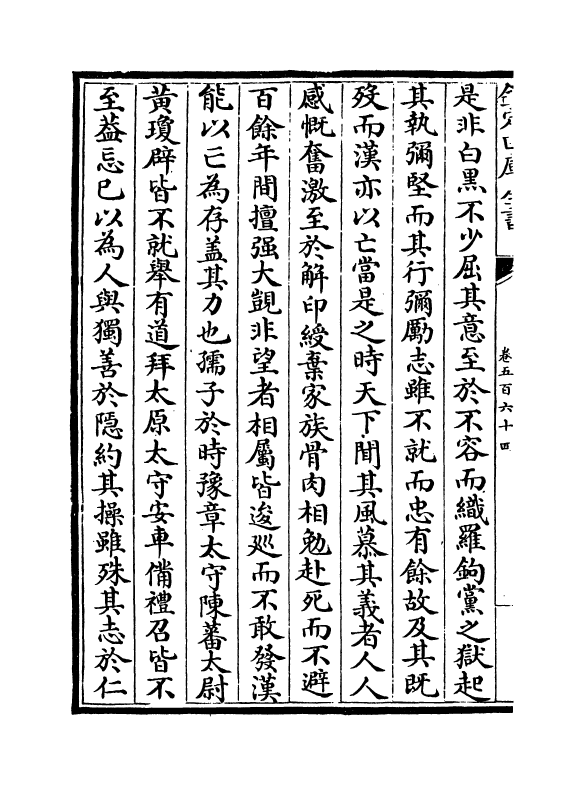 欽定四庫全書
卷五百六十四
是非白黑不少屈其意至於不容而織羅鉤黨之獄起
其執彌堅而其行彌勵志雖不就而忠有餘故及其既
歿而漢亦以亡當是之時天下聞其風慕其義者人人
感慨奮激至於解印綬棄家族骨肉相勉赴死而不避
百餘年間擅强大覬非望者相屬皆逡廵而不敢發漢
能以亡為存盖其力也孺子於時豫章太守陳蕃太尉
黃瓊辟皆不就舉有道拜太原太守安車備禮召皆不
至葢忘已以為人與獨善於隱約其操雖殊其志於仁